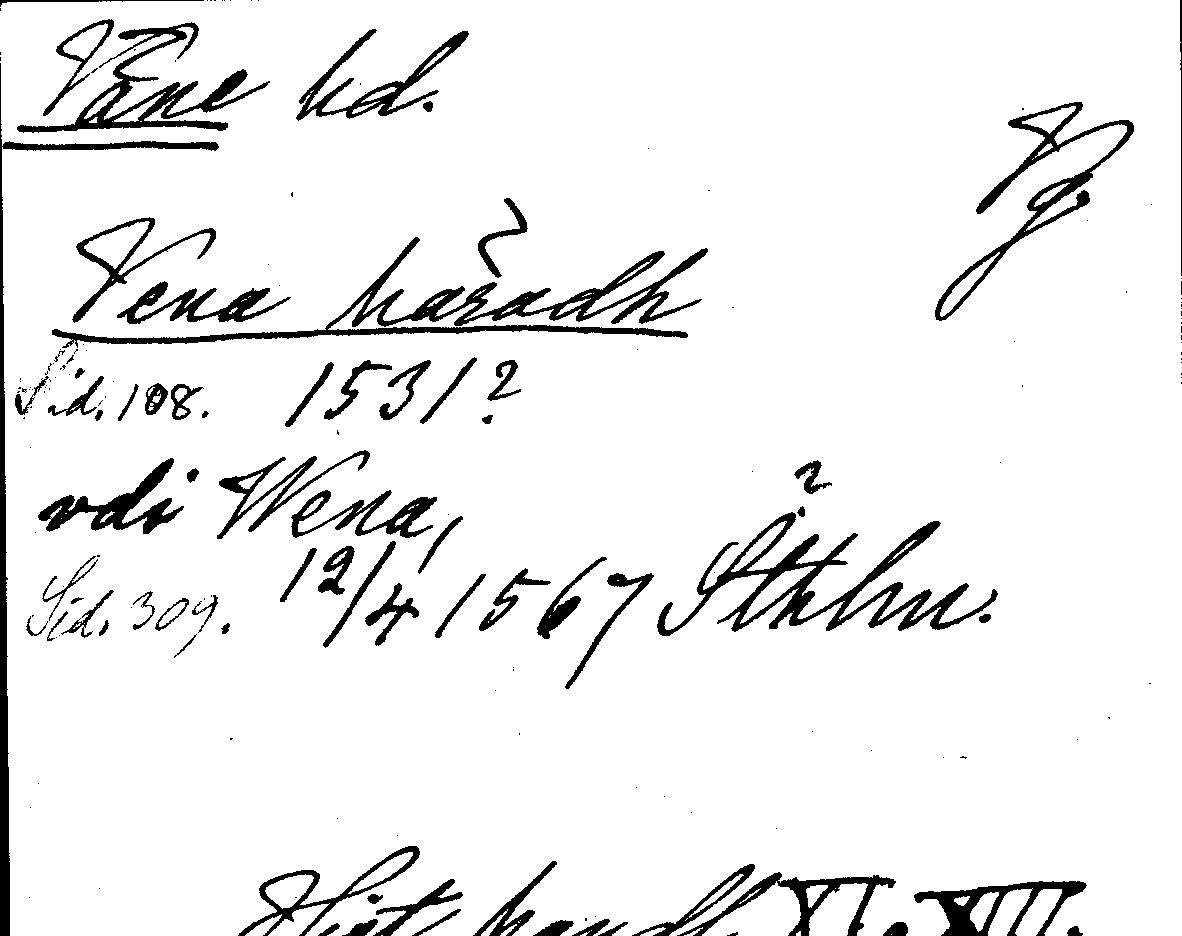 Våne hd.
Vg.
Vena haradh
Sid. 108. 1531?
vdi Wena,
Sid. 309. 12/4 1567 Sthlm.
Hist. handl. XI. XII.